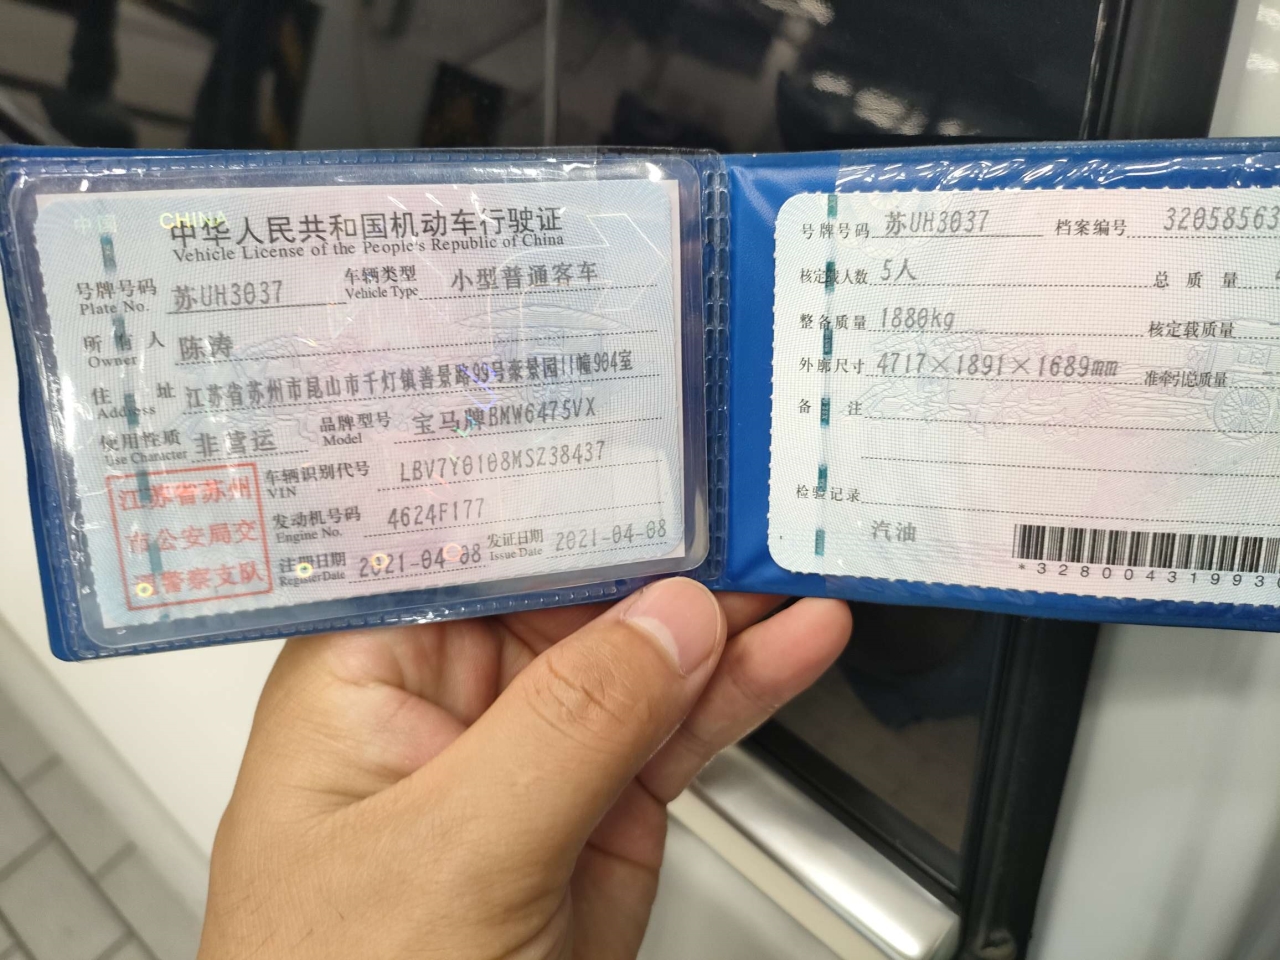 中国 CHINA
中华人民共和国机动车行驶证
Vehicle License of the People's Republic of China
号牌号码 苏UH3037 车辆类型 小型普通客车
Plate No. Vehicle Type
所有人 陈涛
Owner
住址 江苏省苏州市昆山市千灯镇善景路99号豪景园11幢904室
Address
使用性质 非营运 品牌型号 宝马牌BMW6475VX
Use Character Model
江苏省苏州
市公安局交
通警察支队
车辆识别代号 LBV7Y0108MSZ38437
VIN
发动机号码 4624F177
Engine No.
注册日期 2021-04-08 发证日期 2021-04-08
Register Date Issue Date
号牌号码 苏UH3037 档案编号 32058563
核定载人数 5人 总质量
整备质量 1880kg 核定载质量
外廓尺寸 4717×1891×1689mm 准牵引总质量
备注
检验记录
汽油
*3280043199930